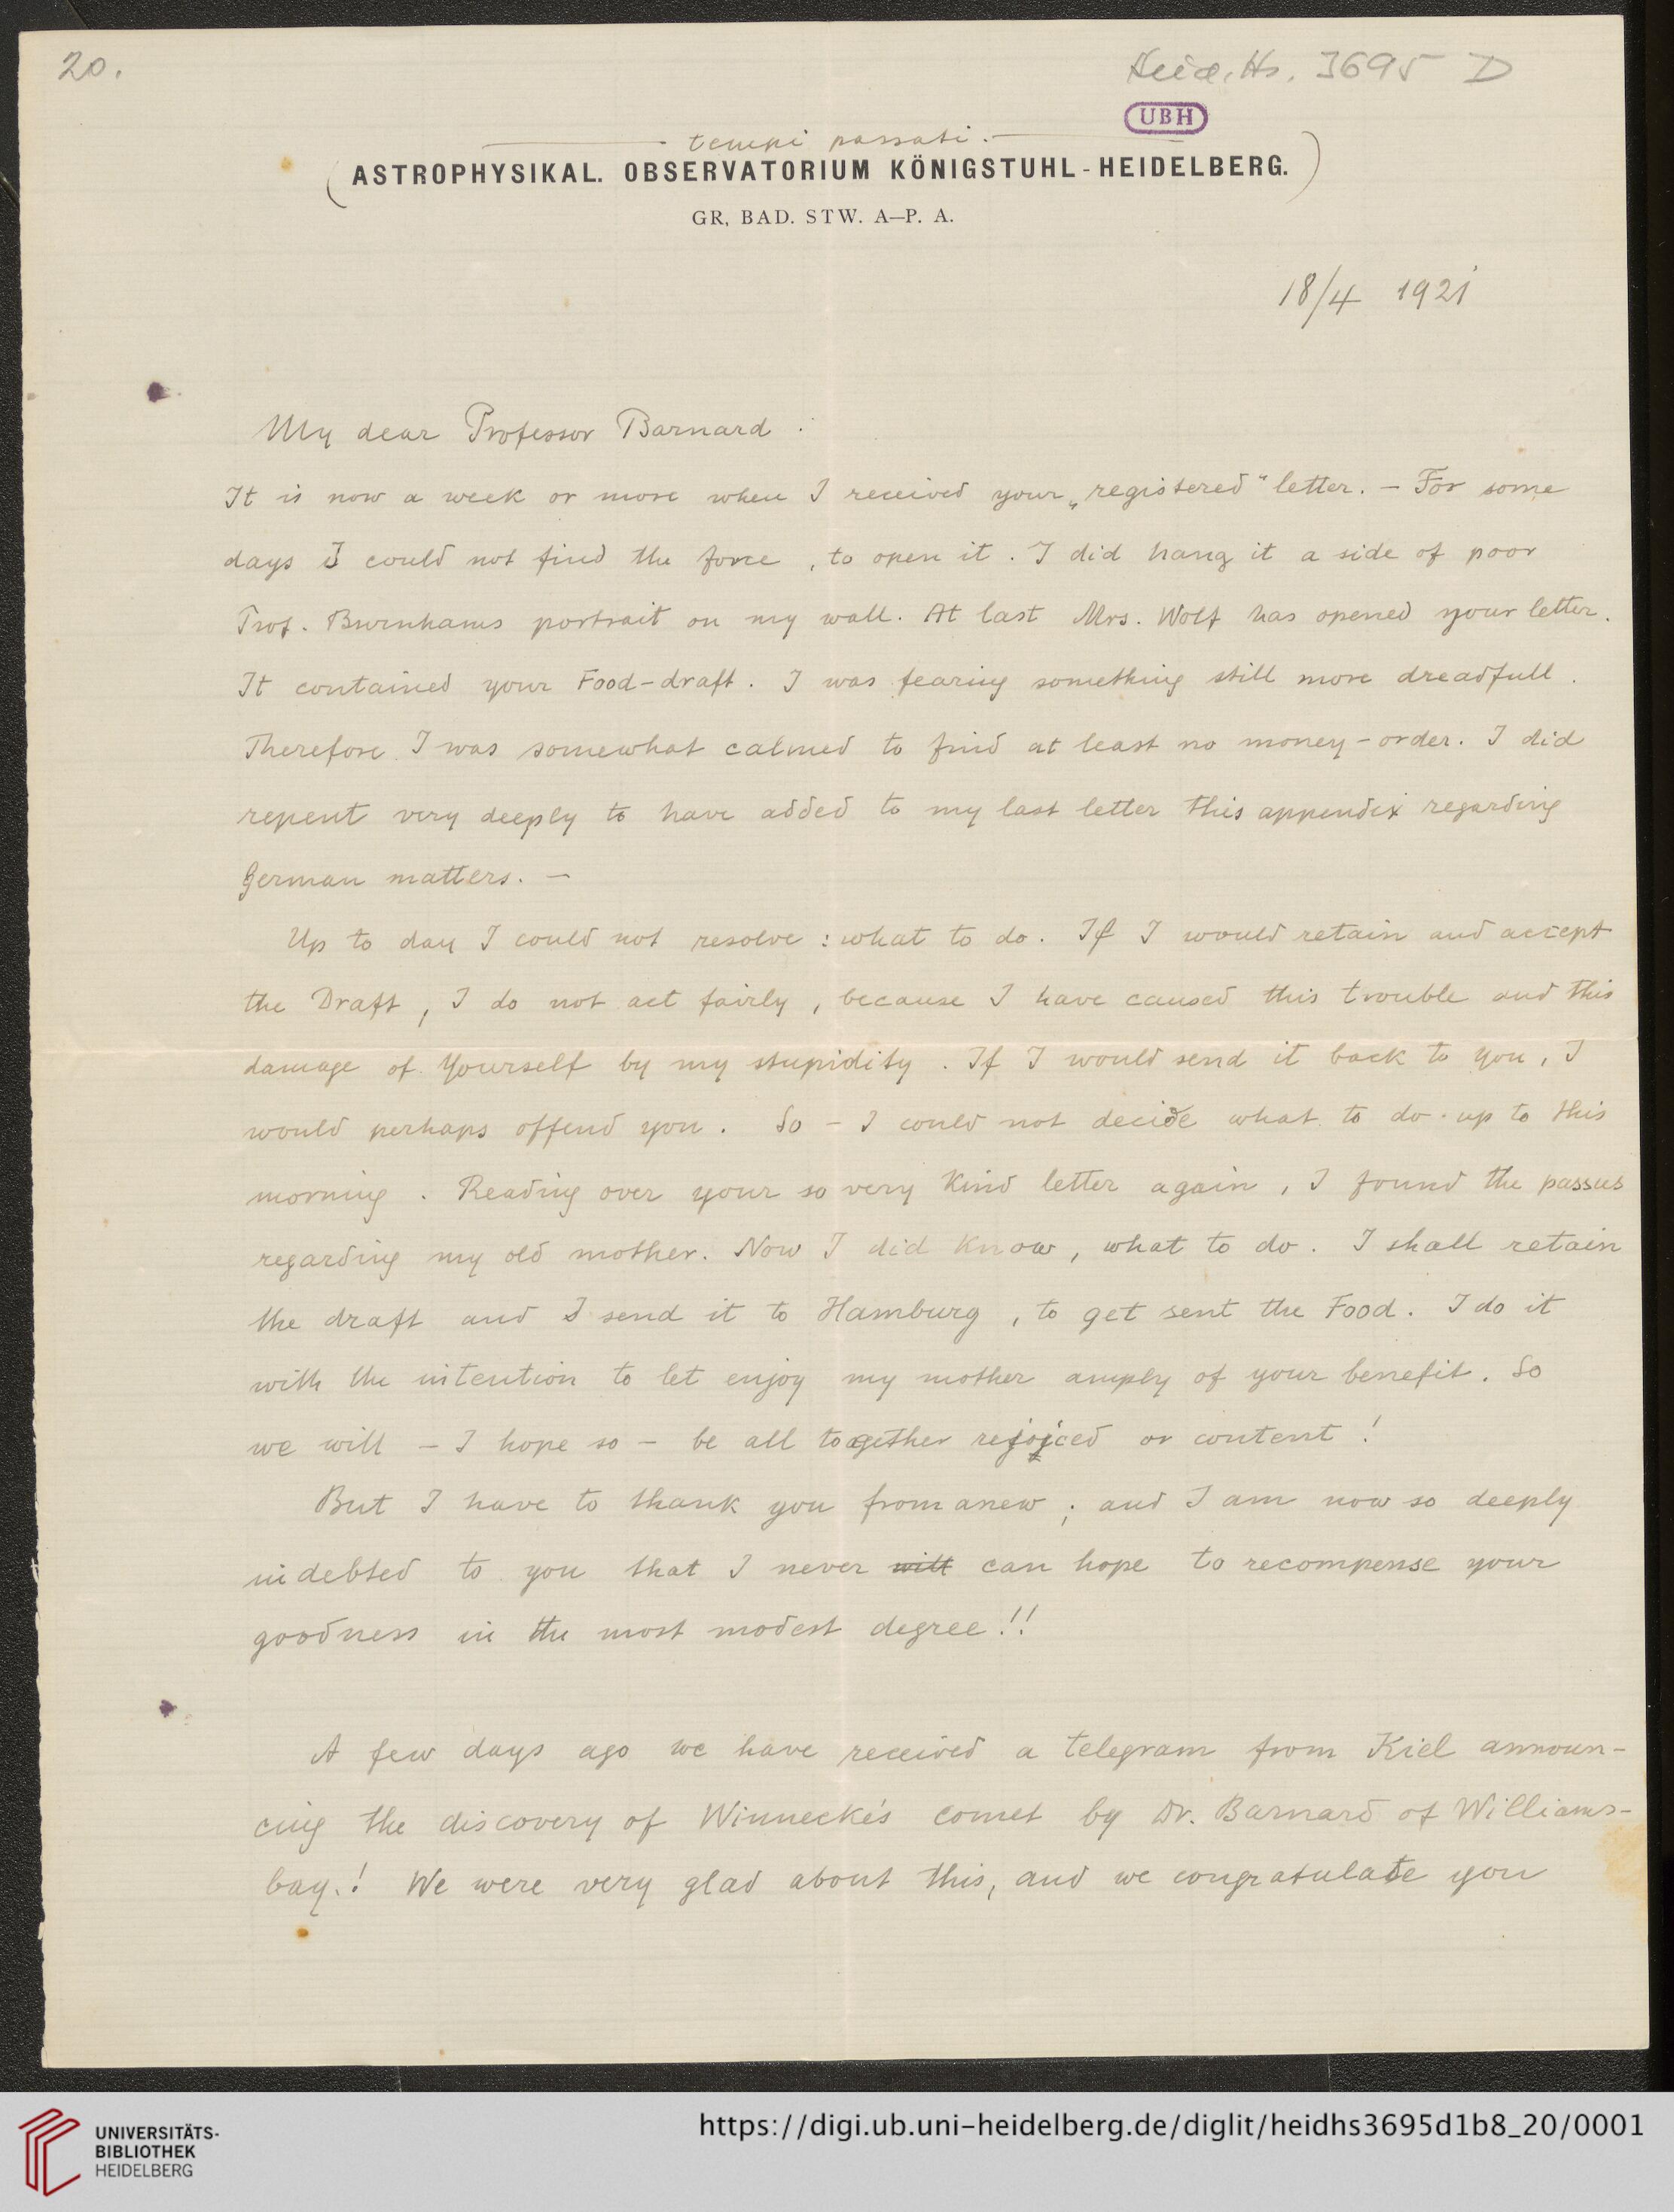 20.
Heid. Hs. 3695 D
UBH
tempi passati.
(ASTROPHYSIKAL. OBSERVATORIUM KÖNIGSTUHL-HEIDELBERG.)
GR, BAD. STW. A—P. A.
18/4 1921
My dear Professor Barnard :
It is now a week or more when I received your „registered“ letter. — For some
days I could not find the force , to open it . I did hang it a side of poor
Prof. Burnhams portrait on my wall. At last Mrs. Wolf has opened your letter.
It contained your Food-draft . I was fearing something still more dreadfull .
Therefore I was somewhat calmed to find at least no money-order. I did
repent very deeply to have added to my last letter this appendix regarding
German matters. —
Up to day I could not resolve : what to do . If I would retain and accept
the Draft , I do not act fairly , because I have caused this trouble and this
damage of Yourself by my stupidity . If I would send it back to you , I
would perhaps offend you . So – I could not decide what to do · up to this
morning . Reading over your so very kind letter again , I found the passus
regarding my old mother. Now I did know , what to do . I shall retain
the draft and I send it to Hamburg , to get sent the Food. I do it
with the intention to let enjoy my mother amply of your benefit . So
we will – I hope so – be all together rejoiced or content !
But I have to thank you from anew ; and I am now so deeply
indebted to you that I never will can hope to recompense your
goodness in the most modest degree!!
A few days ago we have received a telegram from Kiel announ-
cing the discovery of Winnecke's comet by Dr. Barnard of Williams-
bay.! We were very glad about this, and we congratulate you
UNIVERSITÄTS-
BIBLIOTHEK
HEIDELBERG
https://digi.ub.uni-heidelberg.de/diglit/heidhs3695d1b8_20/0001